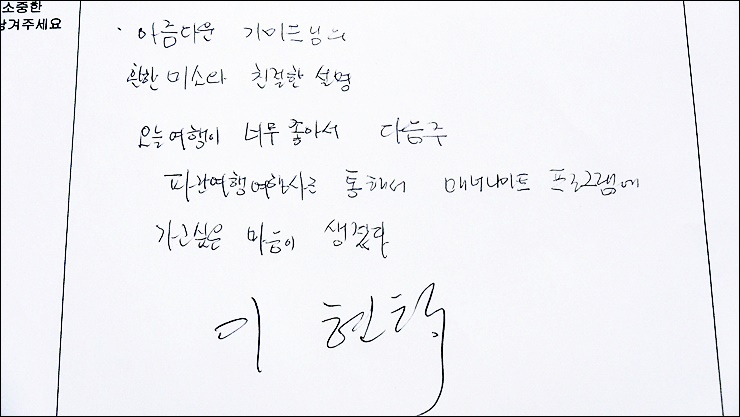 소중한
남겨주세요
· 아름다운 가이드님의
환한 미소와 친절한 설명
오늘 여행이 너무 좋아서 다음주
파란여행 여행사를 통해서 매너나이트 프로그램에
가고싶은 마음이 생겼다
이